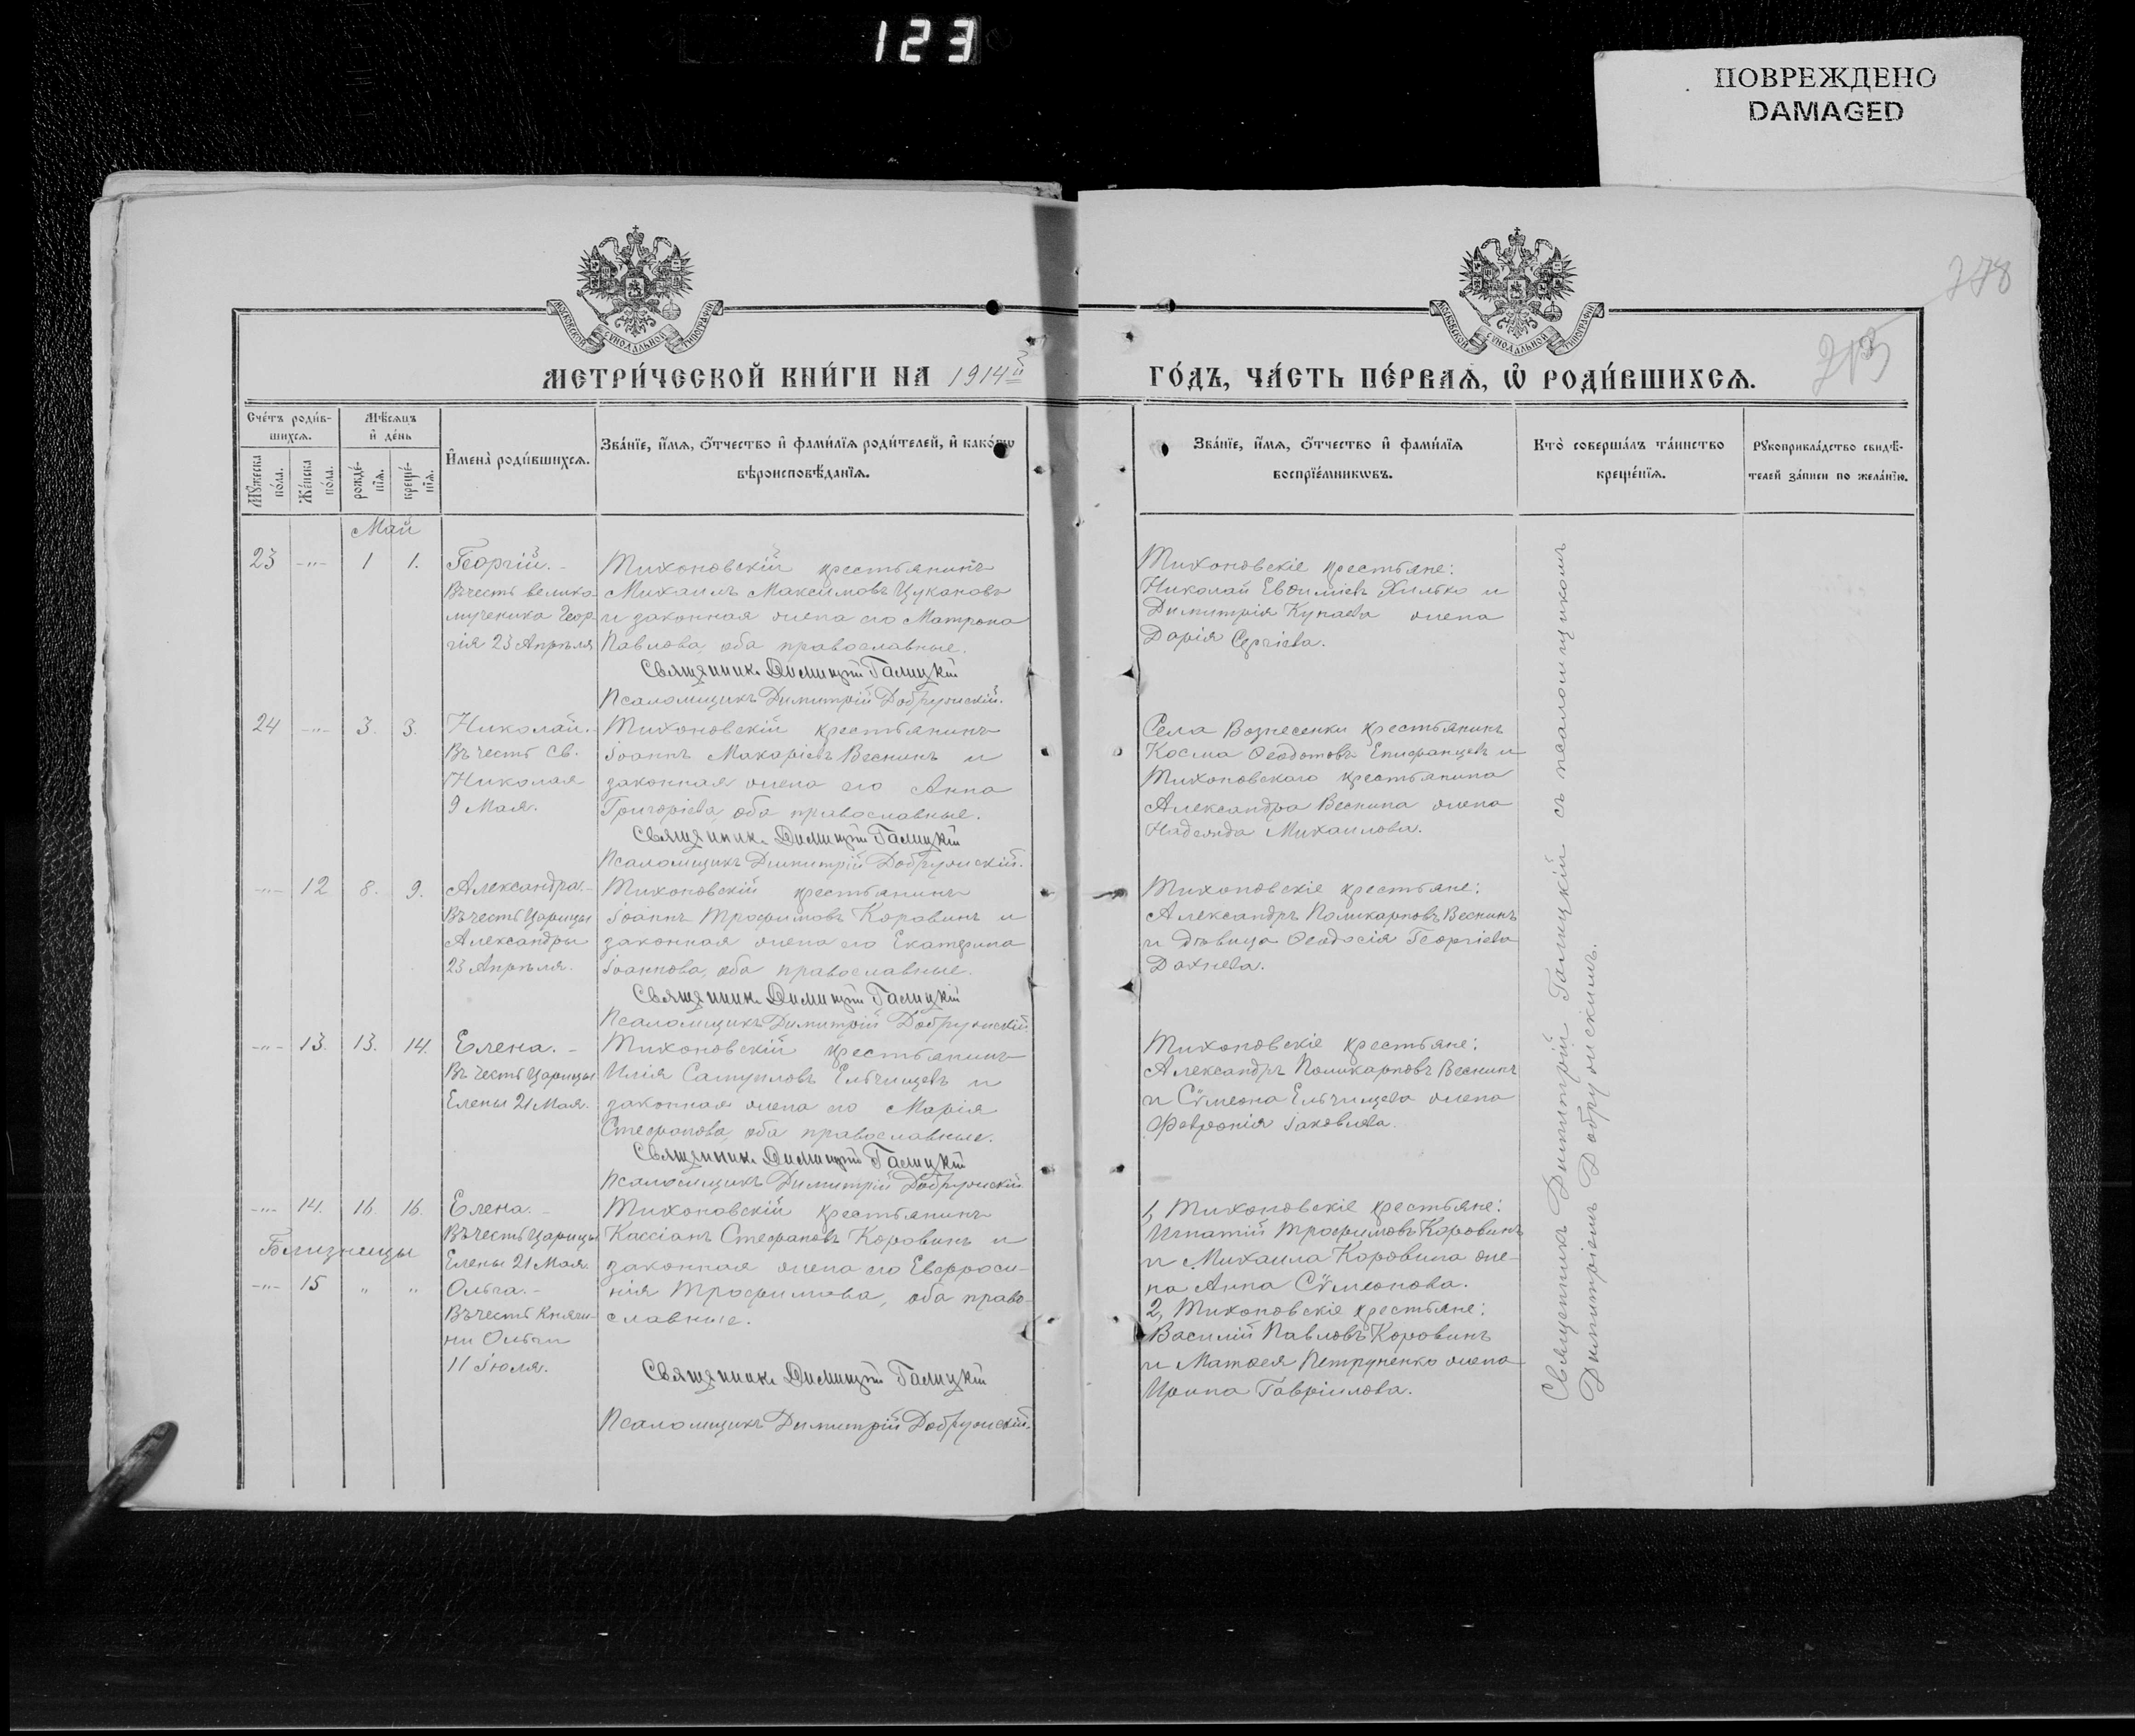 123
ПОВРЕЖДЕНО
DAMAGED
278
МОСКОВСКОЙ СѴНОДАЛЬНОЙ ТИПОГРАФІИ
МОСКОВСКОЙ СѴНОДАЛЬНОЙ ТИПОГРАФІИ
МЕТРИ́ЧЕСКОЙ КНИ́ГИ НА 1914й
ГО́ДЪ, ЧА́СТЬ ПЕ́РВАЯ, Ѽ РОДИ́ВШИХСЯ.
Сче́тъ роди́в-
шихся.
Мѣ́сяцъ
и де́нь
Мꙋ́жеска
по́ла.
Же́нска
по́ла.
рожде́-
нїѧ.
креще́-
нїѧ.
Имена̀ роди́вшихсѧ.
Зва́нїе, и́мѧ, ѻ́тчество и фами́лїѧ роди́телей, и како́гѡ
вѣроисповѣ́данїѧ.
Зва́нїе, и́мѧ, ѻ́тчество и фами́лїѧ
воспрїе́мникѡвъ.
Кто̀ соверша́лъ та́инство
креще́нїѧ.
Рꙋкоприкла́дство свидѣ́-
телей за́писи по жела́нїю.
Май
23 -"- 1 1.
Георгій.-
Въ честь велико-
мученика Геор-
гія 23 Апрѣля
Тихоновскій крестьянинъ
Михаилъ Максимовъ Цукановъ
и законная жена его Матрона
Павлова, оба православные.
Священникъ Димитрій Галицкій
Псаломщикъ Димитрій Добружскій.
Тихоновскіе крестьяне:
Николай Евѳиміевъ Хилько и
Димитрія Кунаева жена
Дарія Сергіева.
24 -"- 3. 3.
Николай.-
Въ честь Св.
Николая
9 Мая.
Тихоновскій крестьянинъ
Іоаннъ Макаріевъ Веснинъ и
законная жена его Анна
Григоріева, оба православные.
Священникъ Димитрій Галицкій
Псаломщикъ Димитрій Добружскій.
Села Вознесенки крестьянинъ
Косма Ѳеодотовъ Епифанцевъ и
Тихоновскаго крестьянина
Александра Веснина жена
Надежда Михаилова.
-"- 12 8. 9.
Александра.-
Въ честь Царицы
Александры
23 Апрѣля.
Тихоновскій крестьянинъ
Іоаннъ Трофимовъ Коровинъ и
законная жена его Екатерина
Іоаннова, оба православные.
Священникъ Димитрій Галицкій
Псаломщикъ Димитрій Добружскій
Тихоновскіе крестьяне:
Александръ Поликарповъ Веснинъ
и дѣвица Ѳеодосія Георгіева
Дахнева.
-"- 13. 13. 14.
Елена.-
Въ честь Царицы
Елены 21 Мая.
Тихоновскій крестьянинъ
Илія Самуиловъ Ельчищевъ и
законная жена его Марія
Стефанова, оба православные.
Священникъ Димитрій Галицкій
Псаломщикъ Димитрій Добружскій
Тихоновскіе крестьяне:
Александръ Поликарповъ Веснинъ
и Сѵмеона Ельчищева жена
Февронія Іаковлева.
-"- 14. 16. 16.
Близнецы
-"- 15 " "
Елена.-
Въ честь Царицы
Елены 21 Мая.
Ольга.-
Въ честь Княги-
ни Ольги
11 Іюля.
Тихоновскій крестьянинъ
Кассіанъ Стефановъ Коровинъ и
законная жена его Евфроси-
нія Трофимова, оба право-
славные.
Священникъ Димитрій Галицкій
Псаломщикъ Димитрій Добружскій.
1, Тихоновскіе крестьяне:
Игнатій Трофимовъ Коровинъ
и Михаила Коровина же-
на Анна Сѵмеонова.
2, Тихоновскіе крестьяне:
Василій Павловъ Коровинъ
и Матѳея Петруненко жена
Ирина Гавріилова.
Священникъ Димитрій Галицкій съ псаломщикомъ
Димитріемъ Добружскимъ.